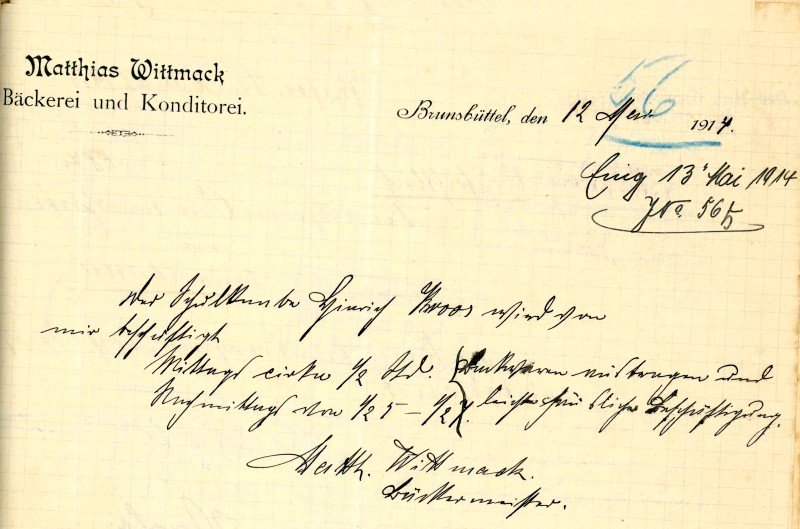 Matthias Wittmack
Bäckerei und Konditorei.
56
Brunsbüttel, den 12 Mai 1914.
Eing 13. Mai 1914
JNo. 565
Der Schulknabe Hinrich Kroos wird von
mir beschäftigt
Mittags cirka 1/2 Std. Backwaren austragen und
Nachmittags von 1/2 5 – 1/2 7. leichte häusliche Beschäftigung.
Matth. Wittmack.
Bäckermeister.